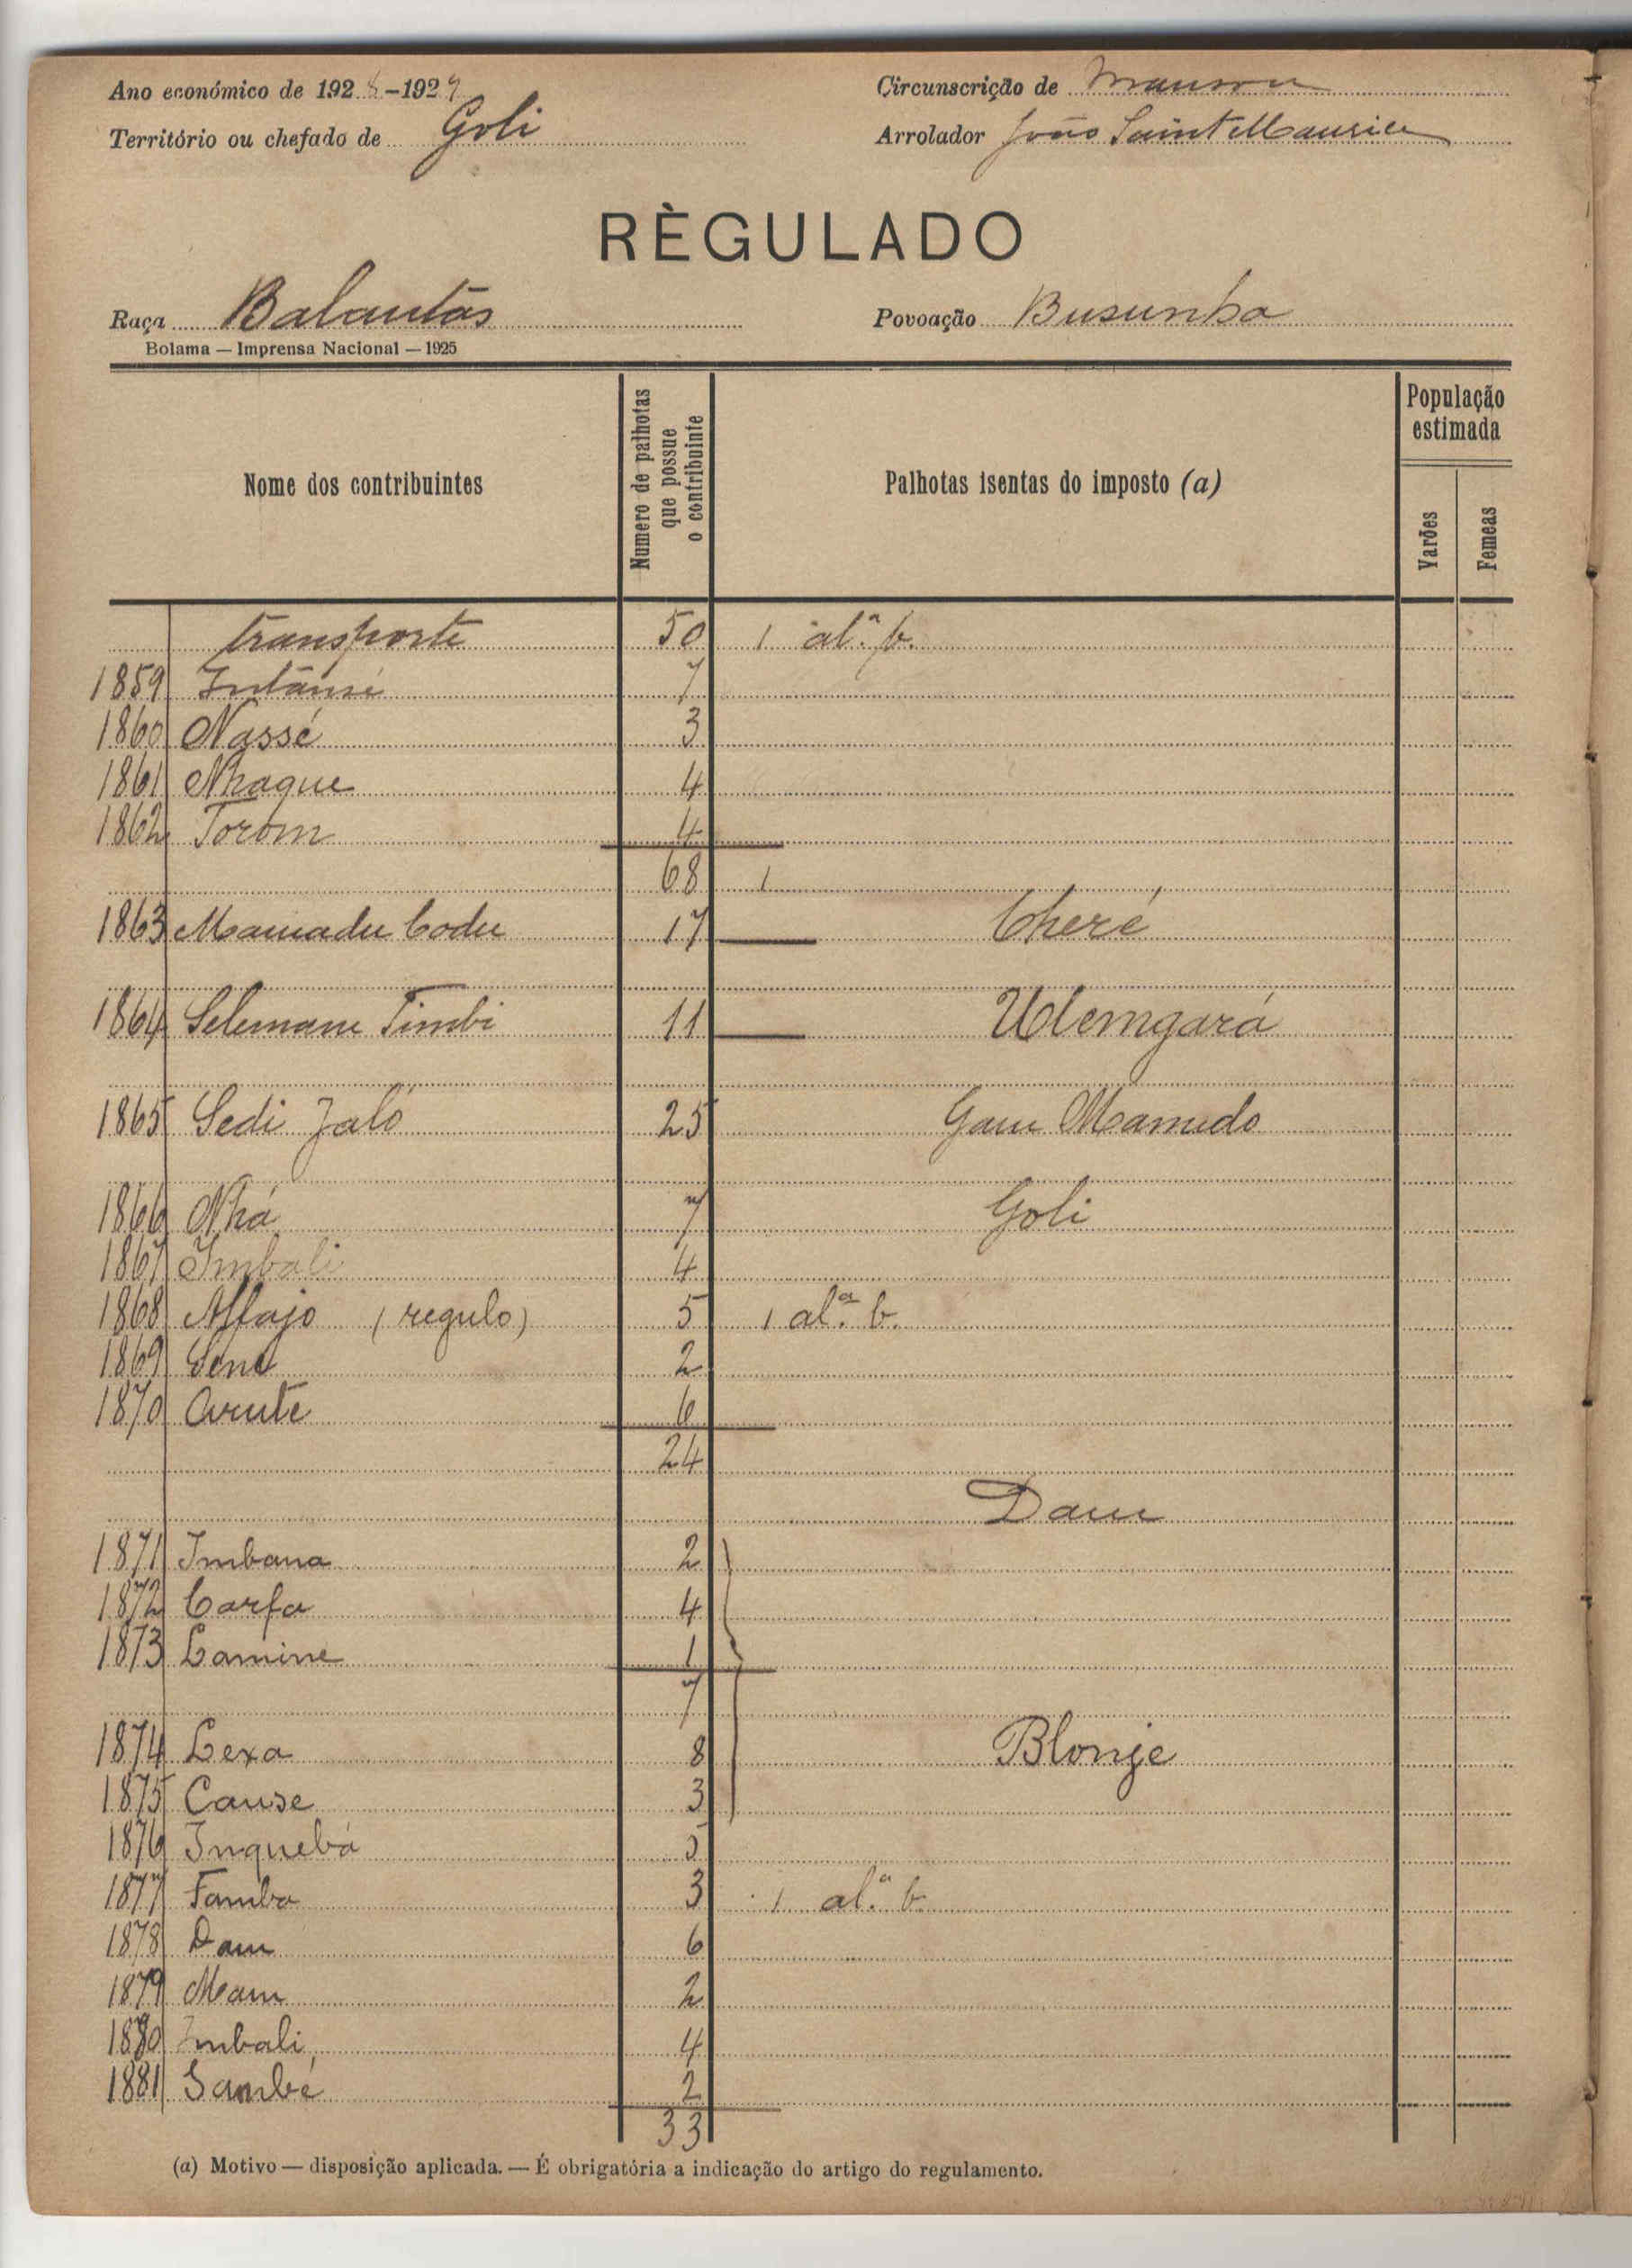 Ano económico de 1928-1929
Circunscrição de Mansoa
Território ou chefado de Goli
Arrolador João Saint Maurice
RÈGULADO
Raça Balantas
Povoação Busunha
Bolama — Imprensa Nacional — 1925
Nome dos contribuintes
Numero de palhotas que possue o contribuinte
Palhotas isentas do imposto (a)
População estimada
Varões
Femeas
transporte 50 1 al.ª b.
1859 7
1860 Nassé 3
1861 Nhaque 4
1862 Torom 4
68 1
1863 Mamadu Codu 17 Cheré
1864 Selemane Timbi 11 Ulemgará
1865 Sedi Jaló 25 Gam Mamudo
1866 Nhá 7 Goli
1867 Imbali 4
1868 Alfajo (regulo) 5 1 al.ª b.
1869 2
1870 6
24
Dam
1871 Imbana 2
1872 Carfa 4
1873 Lamine 1
7
1874 Lexa 8 Blonje
1875 Cause 3
1876 Inquebá 5
1877 Famba 3 1 al.ª b.
1878 Dam 6
1879 Mam 2
1880 Imbali 4
1881 Sambé 2
33
(a) Motivo — disposição aplicada. — É obrigatória a indicação do artigo do regulamento.